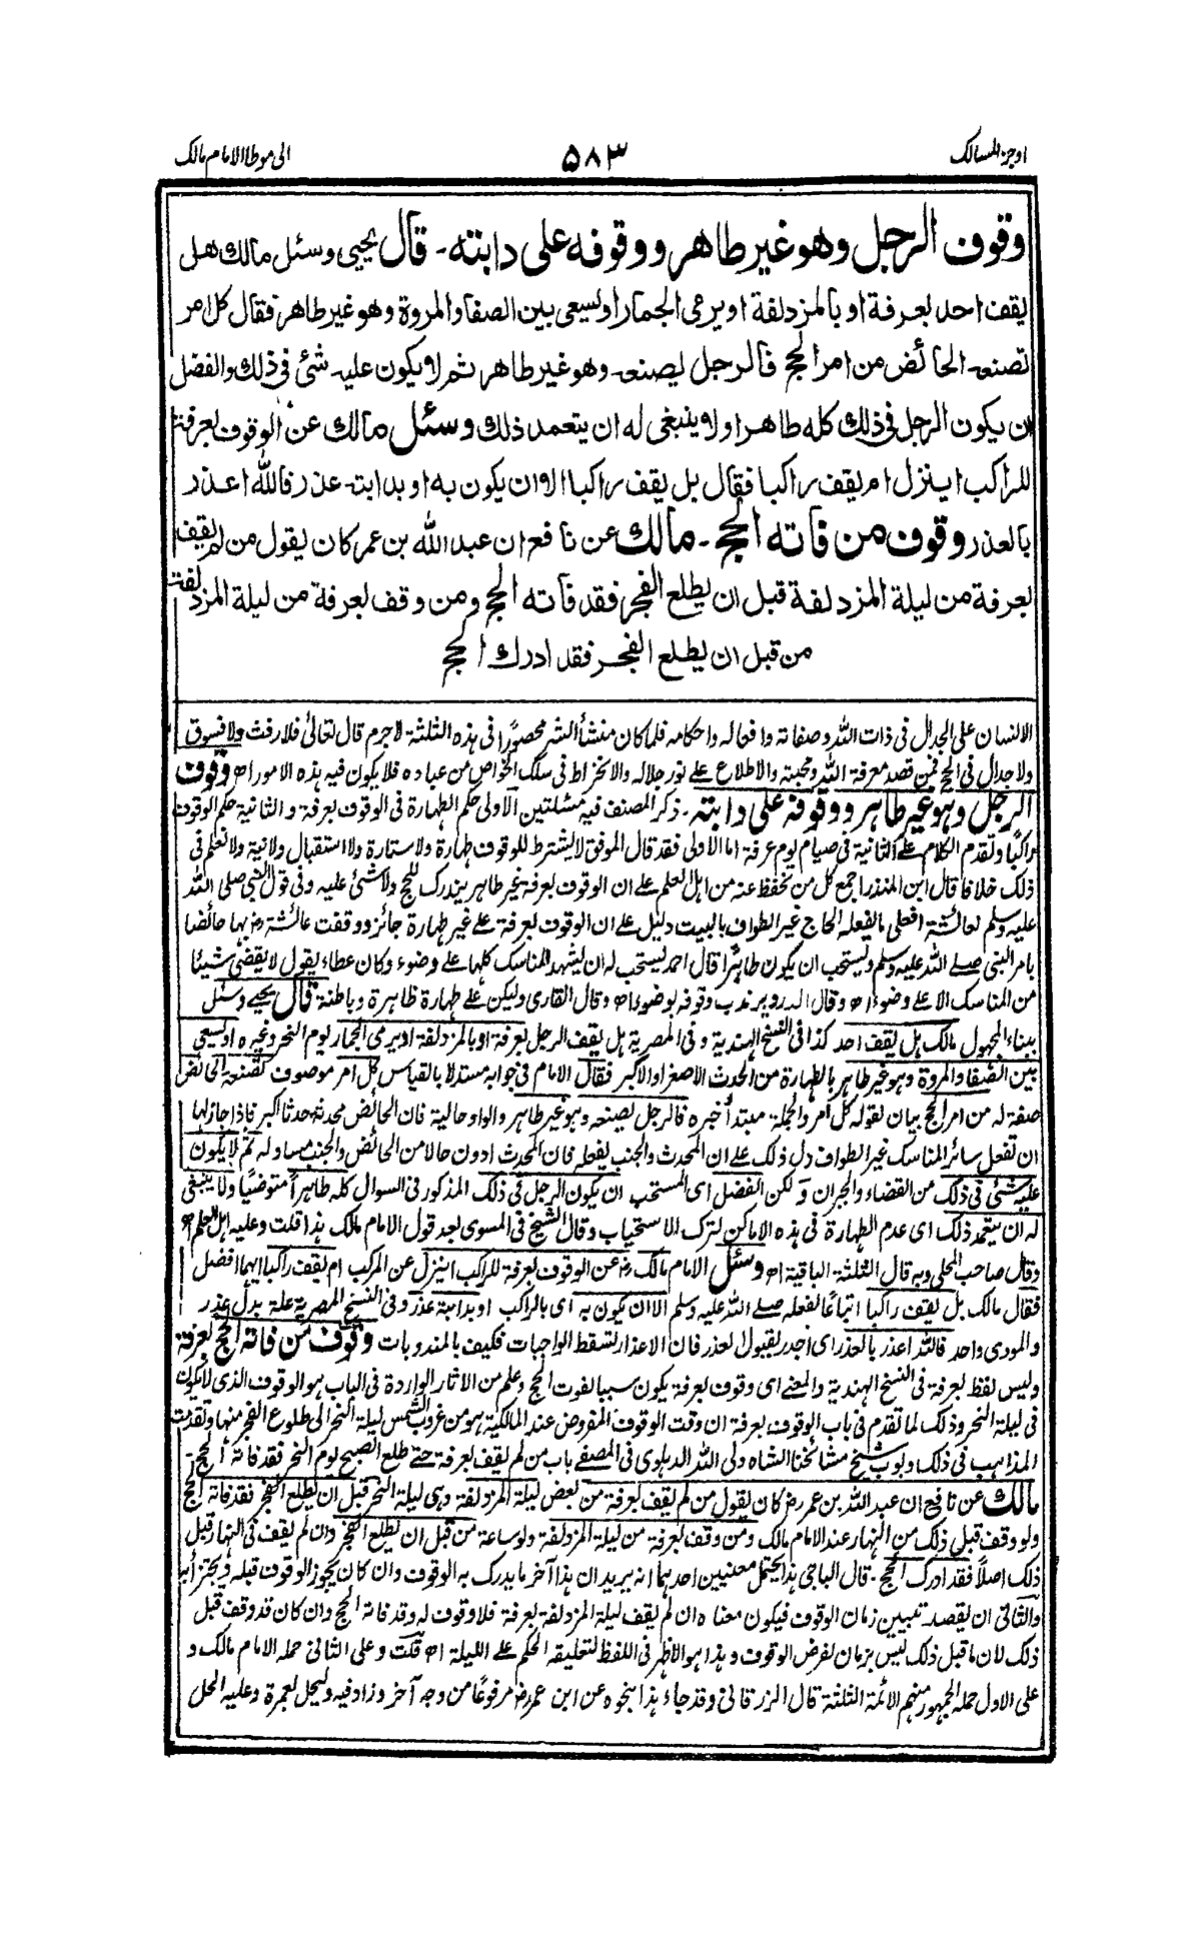 اوجز المسالک
۵۸۳
الی موطا الامام مالک
وقوف الرجل وهو غير طاهر ووقوفه على دابته - قال يحيى وسئل مالك هل
يقف احد بعرفة او بالمزدلفة او يرمى الجمار او يسعى بين الصفا والمروة وهو غير طاهر فقال كل امر
تصنعه الحائض من امر الحج فالرجل يصنعه وهو غير طاهر ثم لا يكون عليه شئ فى ذلك والفضل
ان يكون الرجل فى ذلك كله طاهرا ولا ينبغى له ان يتعمد ذلك وسئل مالك عن الوقوف بعرفة
للراكب اينزل ام يقف راكبا فقال بل يقف راكبا الا ان يكون به او بدابته عذر فالله اعذر
بالعذر وقوف من فاته الحج - مالك عن نافع ان عبد الله بن عمر كان يقول من لم يقف
بعرفة من ليلة المزدلفة قبل ان يطلع الفجر فقد فاته الحج ومن وقف بعرفة من ليلة المزدلفة
من قبل ان يطلع الفجر فقد ادرك الحج
الانسان على الجدال فى ذات الله وصفاته وافعاله واحكامه فلما كان منشأ الشر محصورًا فى هذه الثلثة لاجرم قال تعالى فلا رفث ولا فسوق
ولا جدال فى الحج فمن قصد معرفة الله ومحبته والاطلاع على نور جلاله والانخراط فى سلك الخواص من عباده فلا يكون فيه هذه الامور اه وقوف
الرجل وهو غير طاهر ووقوفه على دابته - ذكر المصنف فيه مسئلتين الاولى حكم الطهارة فى الوقوف بعرفة والثانية حكم الوقوف
راكبا وتقدم الكلام على الثانية فى صيام يوم عرفة اما الاولى فقد قال الموفق لايشترط للوقوف طهارة ولا ستارة ولا استقبال ولا نية ولا نعلم فى
ذلك خلافا قال ابن المنذر اجمع كل من نحفظ عنه من اهل العلم على ان الوقوف بعرفة بغير طاهر يدرك للحج ولا شئ عليه وفى قول النبى صلى الله
عليه وسلم لعائشة افعلى ما يفعله الحاج غير الطواف بالبيت دليل على ان الوقوف بعرفة على غير طهارة جائز ووقفت عائشة رض بها حائضا
بامر النبى صلى الله عليه وسلم ويستحب ان يكون طاهرًا قال احمد يستحب له ان يشهد المناسك كلها على وضوء وكان عطاء يقول لا يقضى شيئا
من المناسك الا على وضوء اه وقال الدردير ندب وقوفه بوضوء اه وقال القارى وليكن على طهارة ظاهرة وباطنة قال يحيى وسئل
ببناء المجهول مالك هل يقف احد كذا فى النسخ الهندية وفى المصرية هل يقف الرجل بعرفة او بالمزدلفة او يرمى الجمار يوم النحر وغيره او يسعى
بين الصفا والمروة وهو غير طاهر بالطهارة من الحدث الاصغر او الاكبر فقال الامام فى جوابه مستدلا بالقياس كل امر موصوف تصنعه الحائض
صفة له من امر الحج بيان لقوله كل امر والجملة مبتدأ خبره فالرجل يصنعه وهو غير طاهر والواو حالية فان الحائض محدثة حدثا اكبر فاذا جاز لها
ان تفعل سائر المناسك غير الطواف دل ذلك على ان المحدث والجنب يفعله فان المحدث ادون حالا من الحائض والجنب مساو له ثم لا يكون
عليه شئ فى ذلك من القضاء والجبران ولكن الفضل اى المستحب ان يكون الرجل فى ذلك المذكور فى السوال كله طاهرا متوضيًا ولا ينبغى
له ان يتعمد ذلك اى عدم الطهارة فى هذه الاماكن لترك الاستحباب وقال الشيخ فى المسوى بعد قول الامام مالك هذا قلت وعليه اهل العلم اه
وقال صاحب المحلى وبه قال الثلثة الباقية اه وسئل الامام مالك رض عن الوقوف بعرفة للراكب اينزل عن المركب ام يقف راكبا ايهما افضل
فقال مالك بل يقف راكبا اتباعًا لفعله صلى الله عليه وسلم الا ان يكون به اى بالراكب او بدابته عذر وفى النسخ المصرية علة بدل عذر
والمودى واحد فالله اعذر بالعذر اى اجدر بقبول العذر فان الاعذار تسقط الواجبات فكيف بالمندوبات وقوف من فاته الحج بعرفة
وليس لفظ بعرفة فى النسخ الهندية والمعنى اى وقوف بعرفة يكون سببا لفوت الحج وعلم من الاثار الواردة فى الباب هو الوقوف الذى لايكون
فى ليلة النحر وذلك لما تقدم فى باب الوقوف بعرفة ان وقت الوقوف المفروض عند المالكية هو من غروب الشمس ليلة النحر الى طلوع الفجر منها وتقدمت
المذاهب فى ذلك وبوب شيخ مشائخنا الشاه ولى الله الدهلوى فى المصفى باب من لم يقف بعرفة حتى طلع الصبح يوم النحر فقد فاته الحج -
مالك عن نافع ان عبد الله بن عمر رض كان يقول من لم يقف بعرفة من بعض ليلة المزدلفة وهى ليلة النحر قبل ان يطلع الفجر فقد فاته الحج
ولو وقف قبل ذلك من النهار عند الامام مالك ومن وقف بعرفة من ليلة المزدلفة ولو ساعة من قبل ان يطلع الفجر وان لم يقف فى النهار قبل
ذلك اصلاً فقد ادرك الحج - قال الباجى هذا يحتمل معنيين احدهما انه يريد ان هذا آخر ما يدرك به الوقوف وان كان يجوز الوقوف قبله ويجتزأ به
والثانى ان يقصد تبيين زمان الوقوف فيكون معناه ان لم يقف ليلة المزدلفة بعرفة فلا وقوف له وقد فاته الحج وان كان قد وقف قبل
ذلك لان ما قبل ذلك ليس بزمان لفرض الوقوف وهذا هو الاظهر فى اللفظ لتعليقه الحكم على الليلة اه قلت وعلى الثانى حمله الامام مالك و
على الاول حمله الجمهور منهم الائمة الثلثة قال الزرقانى وقد جاء هذا بنحوه عن ابن عمر رض مرفوعًا من وجه آخر وزاد فيه وليحل بعمرة وعليه الحل